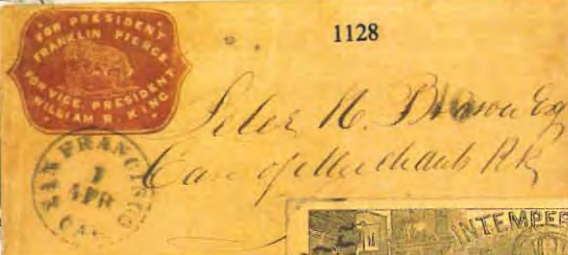 FOR PRESIDENT
FRANKLIN PIERCE
FOR VICE PRESIDENT
WILLIAM R. KING
1128
Esq
Care of Merchants Bk
SAN FRANCISCO
1
APR
CAL
INTEMPER